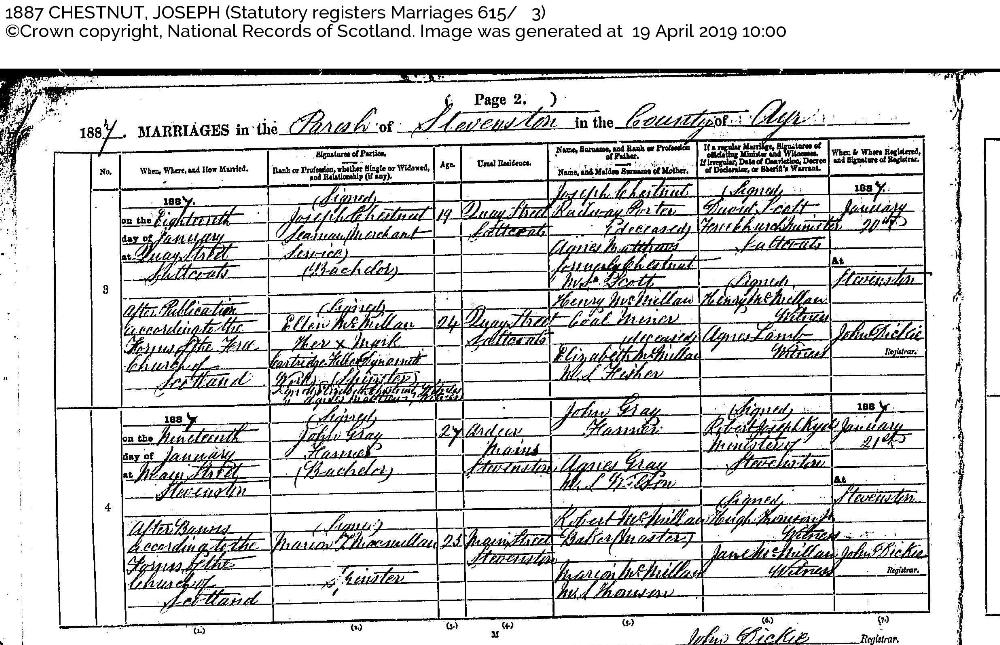 1887 CHESTNUT, JOSEPH (Statutory registers Marriages 615/ 3)
©Crown copyright, National Records of Scotland. Image was generated at 19 April 2019 10:00
( Page 2. )
1887. MARRIAGES in the Parish of Stevenston in the County of Ayr
No.
When, Where, and How Married.
Signatures of Parties.
Rank or Profession, whether Single or Widowed, and Relationship (if any).
Age.
Usual Residence.
Name, Surname, and Rank or Profession of Father.
Name, and Maiden Surname of Mother.
If a regular Marriage, Signatures of officiating Minister and Witnesses.
If irregular, Date of Conviction, Decree of Declarator, or Sheriff's Warrant.
When & Where Registered, and Signature of Registrar.
3
1887.
on the Eighteenth
day of January
at Quay Street
Saltcoats
After Publication
according to the
Forms of the Free
Church of
Scotland
(Signed)
Joseph Chestnut
Seaman Merchant
Service
(Bachelor)
(Signed)
Ellen McMillan
Her x Mark
Cartridge Filler Dynamite
Works (Spinster)
19
24
Quay Street
Saltcoats
Quay Street
Saltcoats
Joseph Chestnut
Railway Porter
(deceased)
Agnes Matthews
formerly Chestnut
M.S. Scott
Henry McMillan
Coal Miner
(deceased)
Elizabeth McMillan
M.S. Fisher
(Signed)
David Scott
Free Church Minister
Saltcoats
(Signed)
Henry McMillan
Witness
Agnes Lamb
Witness
1887.
January
20th
At
Stevenston
John Dickie
Registrar.
4
1887
on the Nineteenth
day of January
at Main Street
Stevenston
After Banns
according to the
Forms of the
Church of
Scotland
(Signed)
John Gray
Farmer
(Bachelor)
(Signed)
Marion T. Macmillan
Spinster
27
23
Ardeer
Mains
Stevenston
Main Street
Stevenston
John Gray
Farmer
Agnes Gray
M.S.
Robert McMillan
Baker (Master)
Marion McMillan
M.S. Thomson
(Signed)
Robert Joseph Kyd
Minister of
Stevenston
(Signed)
Hugh
Witness
Jane McMillan
Witness
1887
January
21st
At
Stevenston
John Dickie
Registrar.
(1.) (2.) (3.) (4.) (5.) (6.) (7.)
M
John Dickie Registrar.